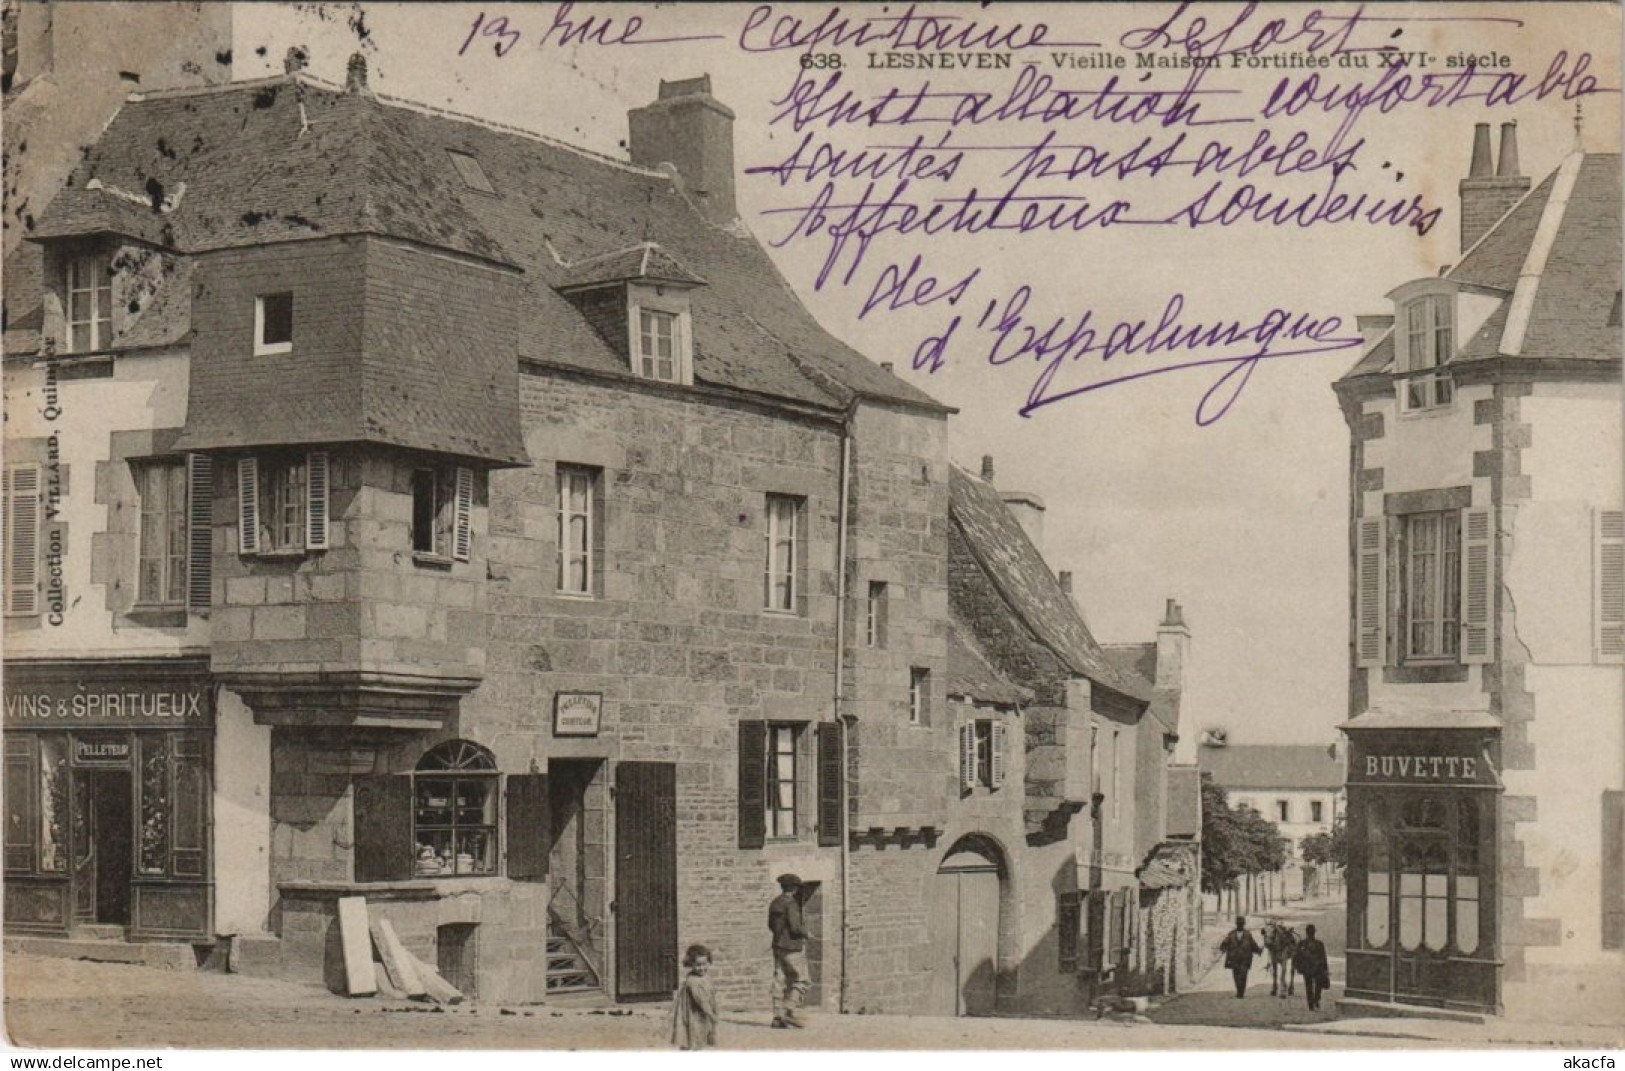 13 rue Capitaine Lefort.
638. LESNEVEN – Vieille Maison Fortifiée du XVIe siècle
Installation confortable
santés passables.
Affectueux souvenirs
des
d'Espalungue
Collection VILLARD, Quimper
VINS & SPIRITUEUX
PELLETEUR
PELLETEUR
BUVETTE
akacfa